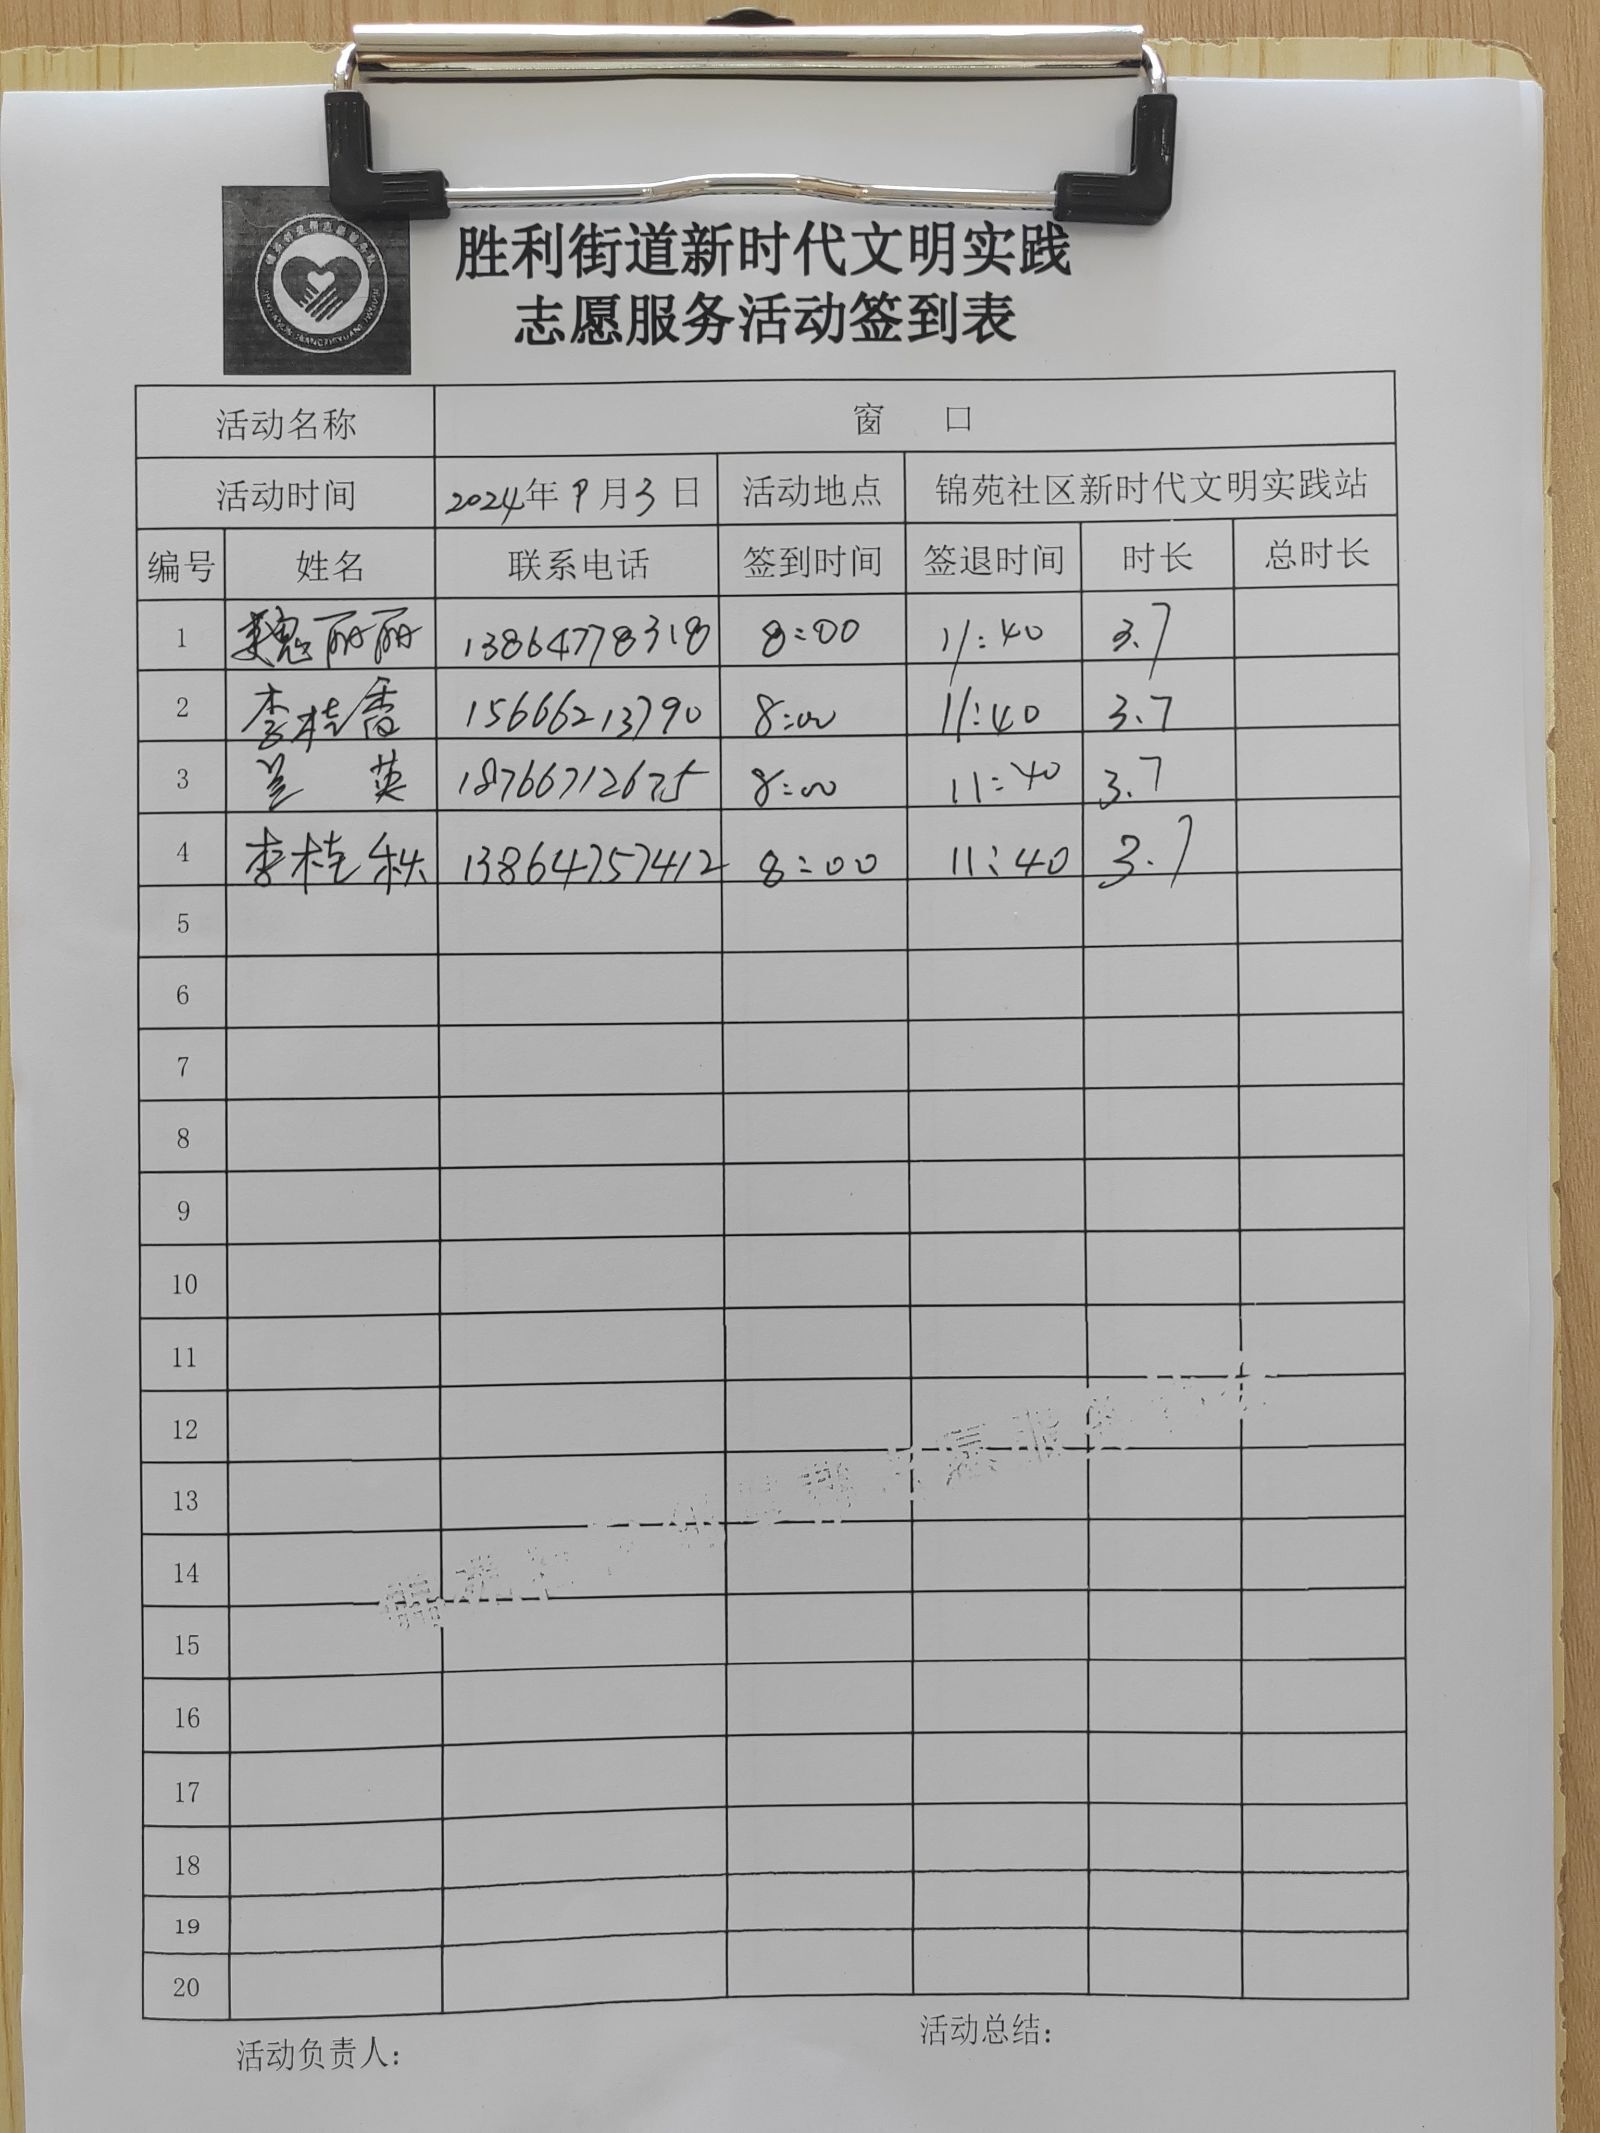 胜利街道新时代文明实践
志愿服务活动签到表
活动名称 窗 口
活动时间 2024年9月3日 活动地点 锦苑社区新时代文明实践站
编号 姓名 联系电话 签到时间 签退时间 时长 总时长
1 魏丽丽 13864778318 8:00 11:40 3.7
2 李桂香 15666213790 8:00 11:40 3.7
3 兰英 18766712675 8:00 11:40 3.7
4 李桂秋 13864757412 8:00 11:40 3.7
5
6
7
8
9
10
11
12
13
14
15
16
17
18
19
20
活动负责人: 活动总结: